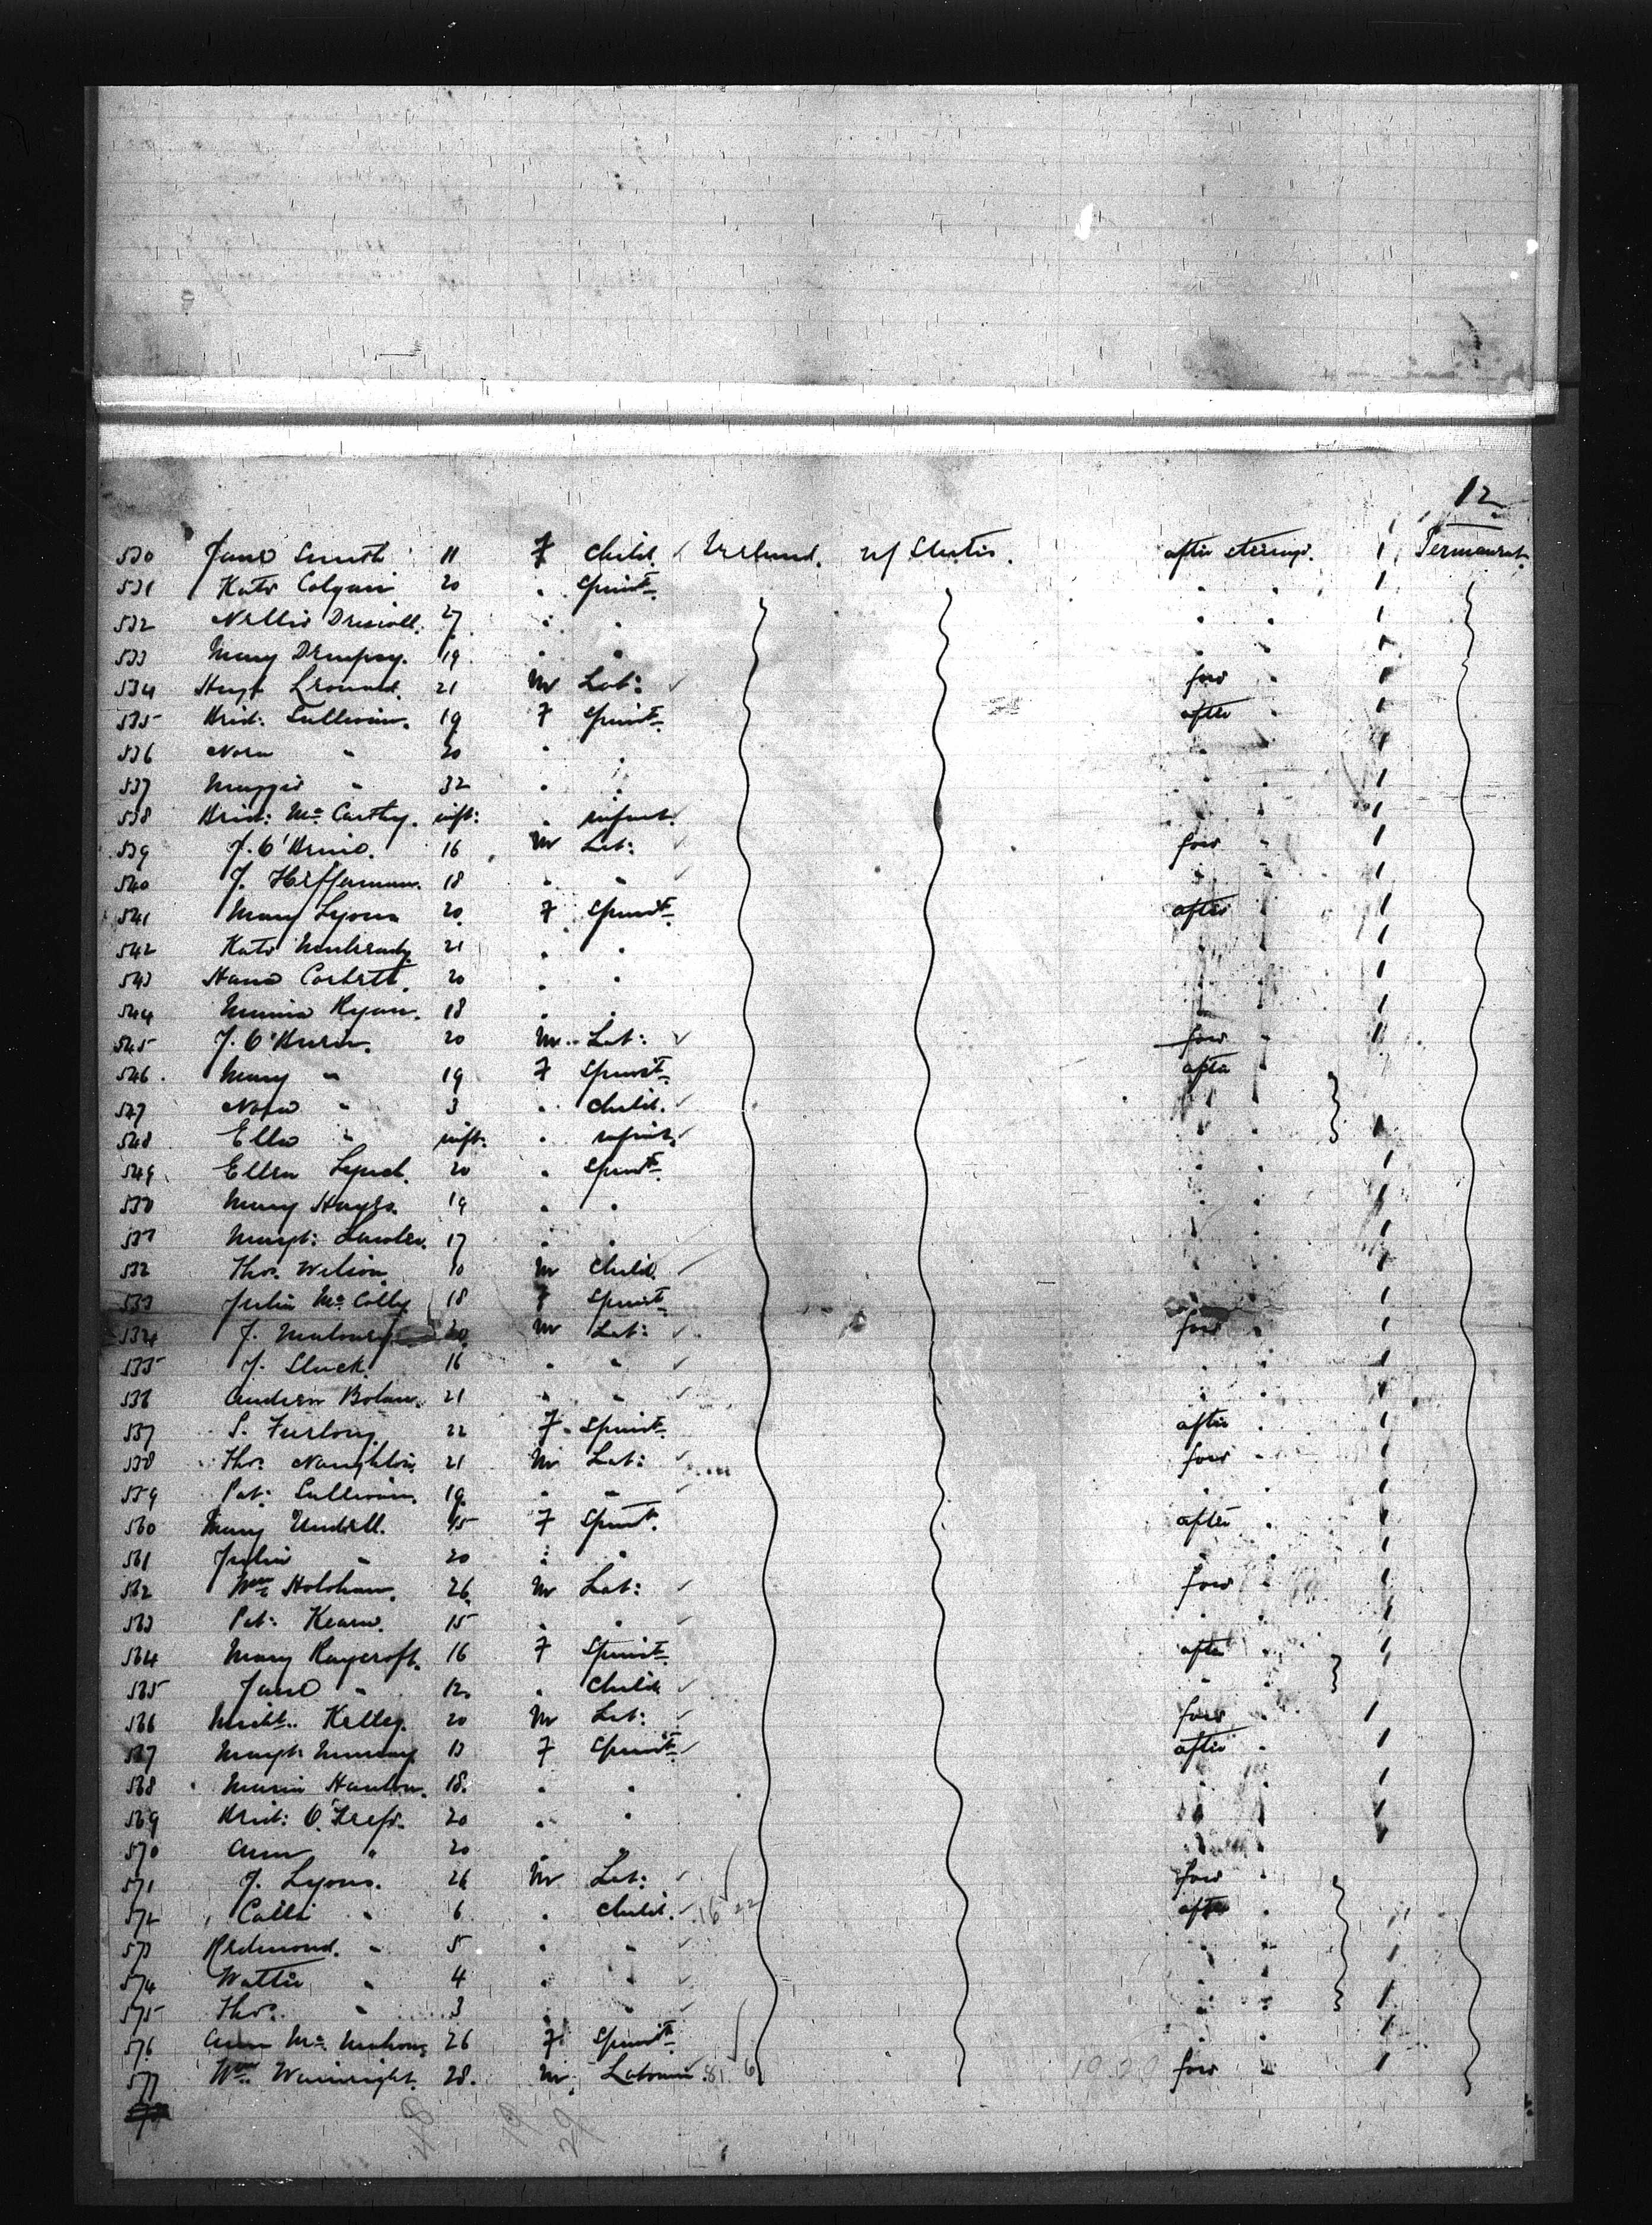 12
530 Jane Smith 11 F Child Ireland. U/ States. after steerage. 1 Permanent
531 Kate Colgan 20 " Spinst. " " 1
532 Nellie Driscoll. 27 " " " " 1
533 Mary Dempsey. 19 " " " " 1
534 Hugh Leonard. 21 M Lab: for'd " 1
535 Brid: Sullivan. 19 F Spinst. after " 1
536 Nora " 20 " " " " 1
537 Maggie " 32 " " " " 1
538 Brid: McCarthy. inft: " infant. " " 1
539 J. O'Brine. 16 M Lab: for'd " 1
540 J. Heffernan. 18 " " " " 1
541 Mary Lyons 20 F Spinst. after " 1
542 Kate 21 " " " " 1
543 Hana Corbett. 20 " " " " 1
544 Minnie Ryan. 18 " " " " 1
545 J. O'Brien. 20 M Lab: for'd " 1
546 Mary " 19 F Spinst. after "
547 Nora " 3 " Child. " "
548 Ella " inft. " infant. " " 1
549 Ellen Lynch. 20 " Spinst. " " 1
550 Mary Hayes. 19 " " " " 1
551 Margt: Lawler. 17 " " " " 1
552 Thos. Wilson 10 M Child. " " 1
553 Julia 18 F Spinst. " " 1
554 J. Maloney 20 M Lab: for'd " 1
555 J. 16 " " " " 1
556 Andrew Bolan. 21 " " " " 1
557 S. Furlong 22 F Spinst. after " 1
558 Thos. Naughton. 21 M Lab: for'd " 1
559 Pat: Sullivan. 19 " " " " 1
560 Mary 15 F Spinst. after " 1
561 Julia " 20 " " " " 1
562 Wm. Holohan. 26 M Lab: for'd " 1
563 Pat: 15 " " " " 1
564 Mary Raycroft. 16 F Spinst. after " 1
565 Jane " 12 " Child " "
566 Michl. Kelley. 20 M Lab: for'd " 1
567 Margt: Murray F Spinst. after " 1
568 Maria Hanlon. 18. " " " " 1
569 Brid: 20 " " " " 1
570 Ann " 20 " " " " 1
571 J. Lyons. 26 M Lab: for'd "
572 " 6 " Child. 16 22 after "
573 Redmond. " 5 " " " " 1
574 Wattie " 4 " " " " 1
575 Thos. " 3 " " " " 1
576 Ann McMahon. 26 F Spinst. " " 1
577 Wm. Wainright. 28. M. Labourer 81. 6 for'd " 1